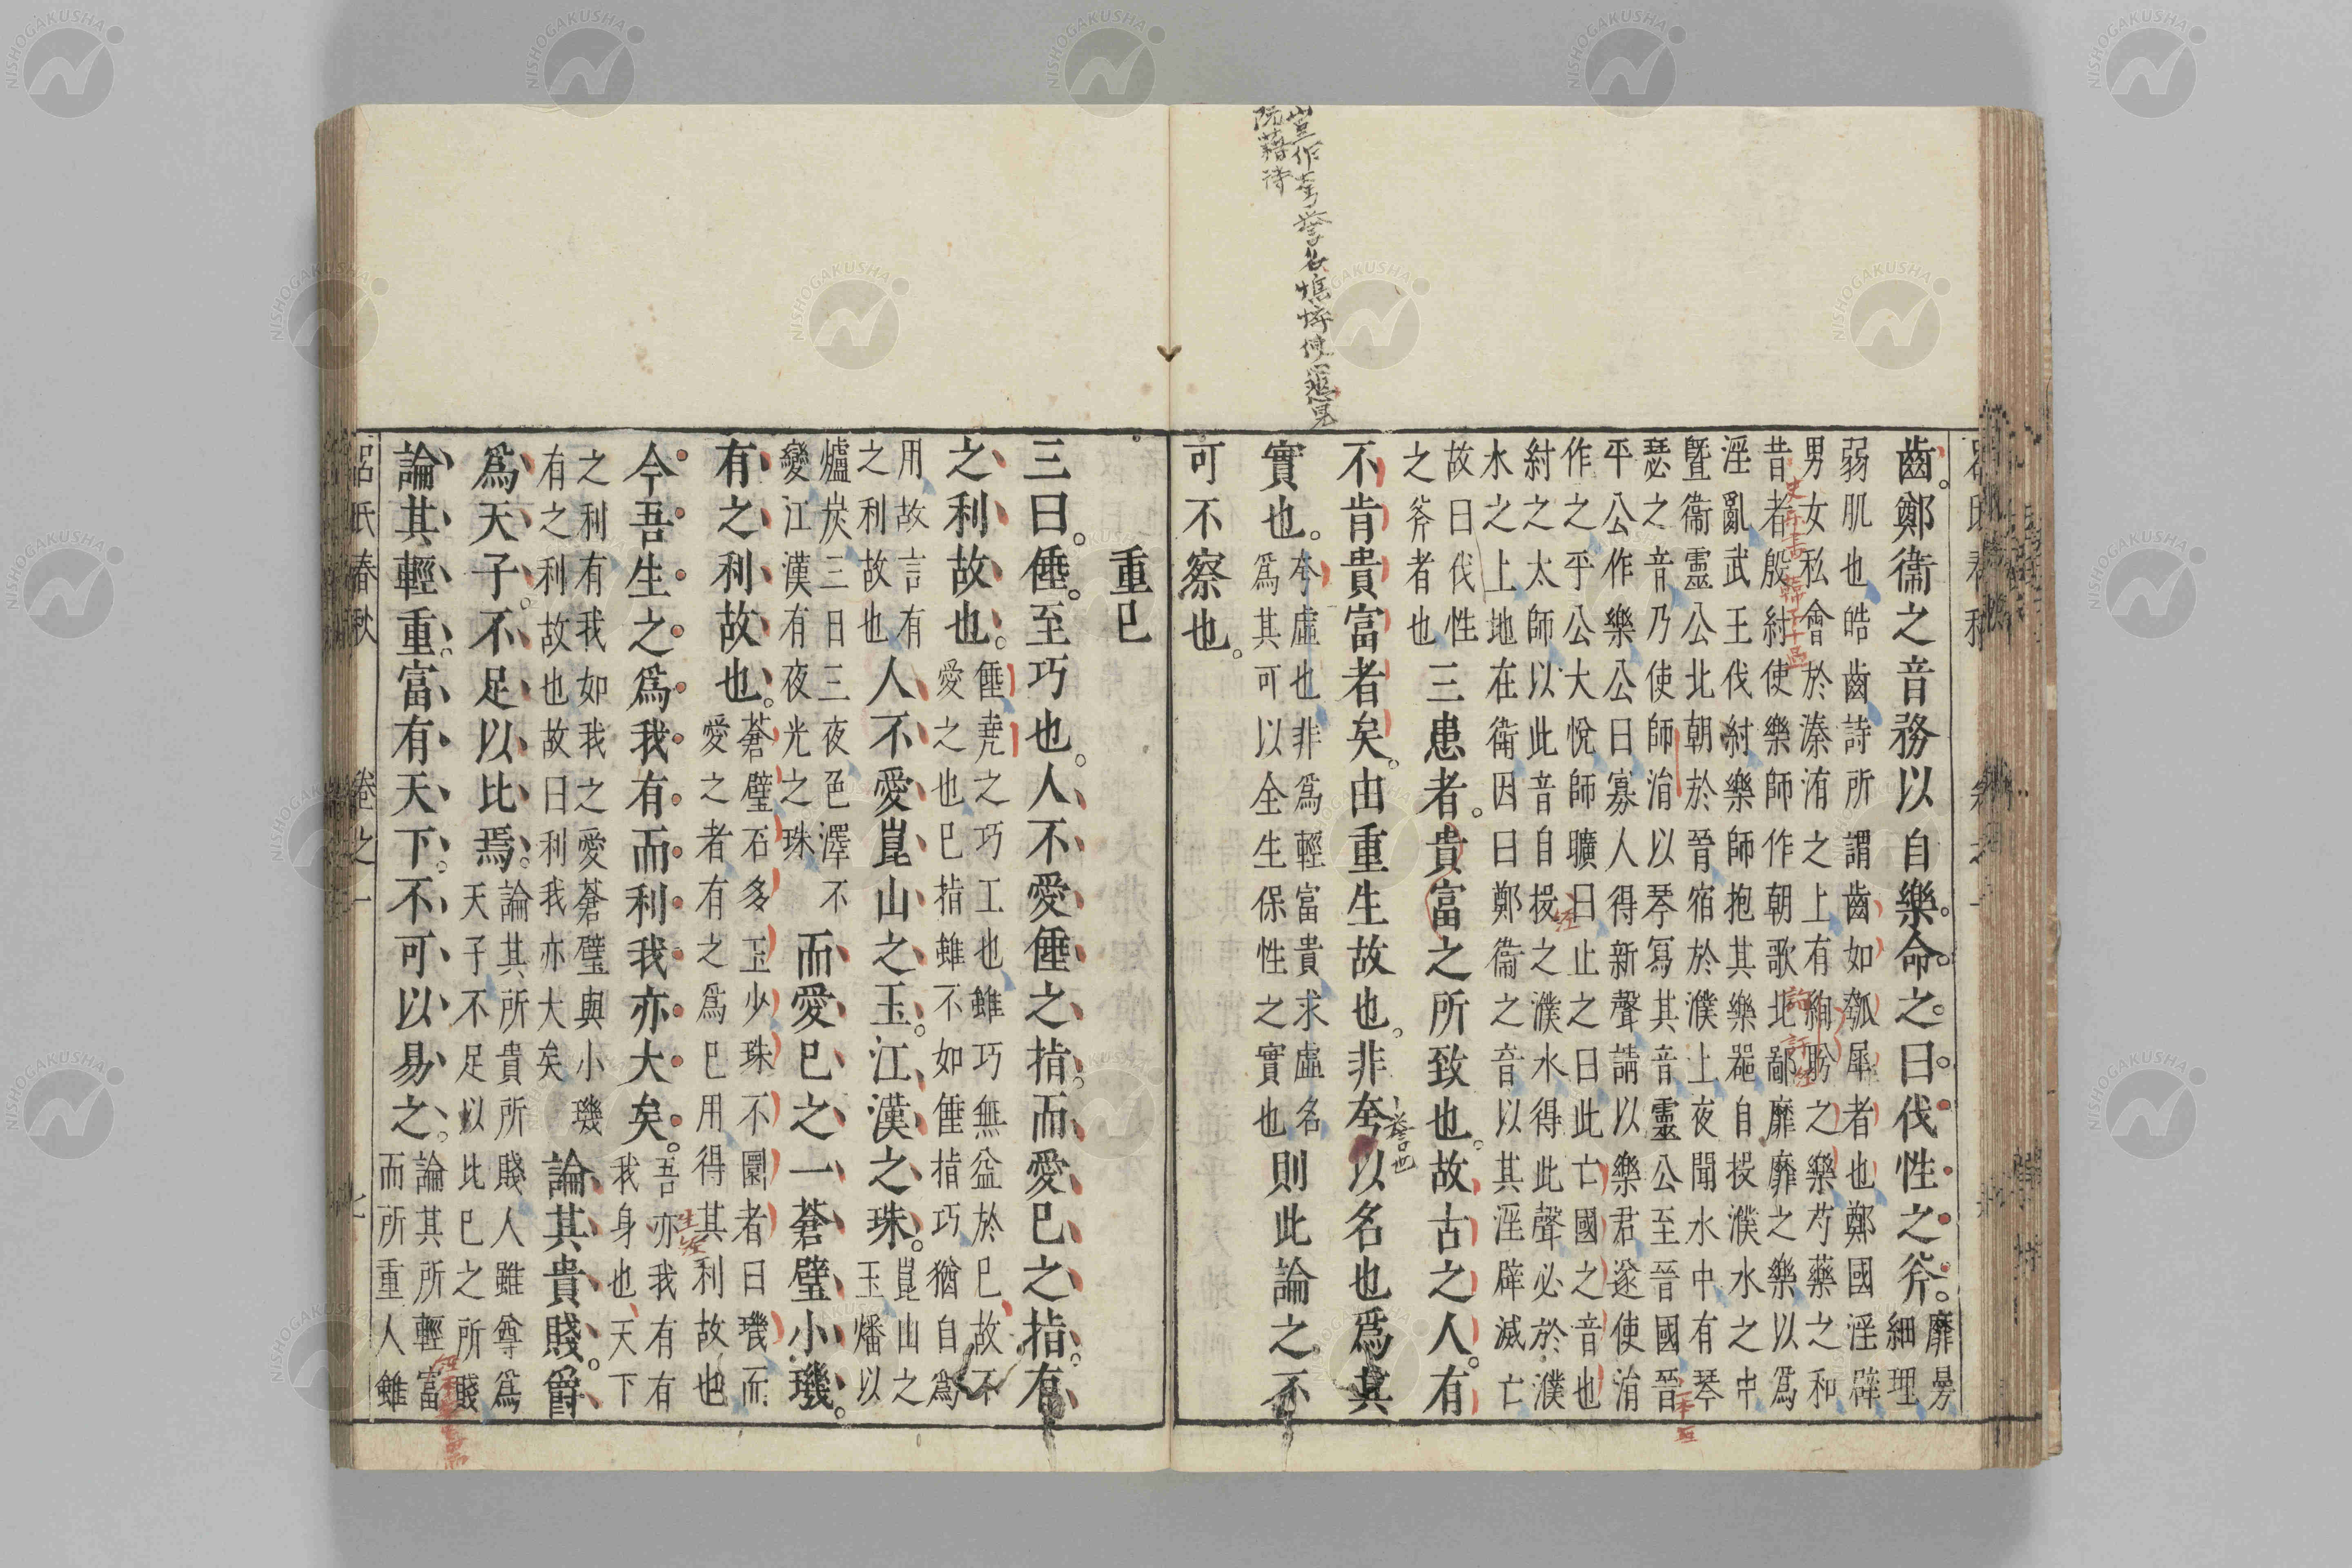 齒。鄭衞之音務以自樂。命之。曰。伐性之斧。靡曼
細理
弱肌也皓齒詩所謂齒如瓠犀者也鄭國淫辟
男女私會於溱洧之上有絢盻之樂芍藥之和
昔者殷紂使樂師作朝歌北鄙靡靡之樂以爲
淫亂武王伐紂樂師抱其樂器自投濮水之中
曁衞靈公北朝於晉宿於濮上夜聞水中有琴
瑟之音乃使師涓以琴寫其音靈公至晉國晉
平公作樂公曰寡人得新聲請以樂君遂使涓
作之平公大悅師曠曰止之曰此亡國之音也
紂之太師以此音自投之濮水得此聲必於濮
水之上地在衞因曰鄭衞之音以其淫辟滅亡
故曰伐性
之斧者也
三患者。貴富之所致也。故古之人。有
不肯貴富者矣。由重生故也。非夸以名也爲其
實也。
夸虛也非爲輕富貴求虛名
爲其可以全生保性之實也
則此論之。不
可不察也。
重己
三曰。倕。至巧也。人不愛倕之指。而愛己之指。有
之利故也。
倕堯之巧工也雖巧無益於己故不
愛之也己指雖不如倕指巧猶自爲
用故言有
之利故也
人不愛崑山之玉。江漢之珠。
崑山之
玉燔以
爐炭三日三夜色澤不
變江漢有夜光之珠
而愛己之一蒼璧小璣。
有之利故也。
蒼璧石多玉少珠不圜者曰璣而
愛之者有之爲己用得其利故也
今吾生之爲我有而利我亦大矣。
吾亦我有有
我身也天下
之利有我如我之愛蒼璧與小璣
有之利故也故曰利我亦大矣
論其貴賤。爵
爲天子。不足以比焉。
論其所貴所賤人雖尊爲
天子不足以比己之所賤
論其輕重。富有天下。不可以易之。
論其所輕富
而所重人雖
呂氏春秋
卷之一